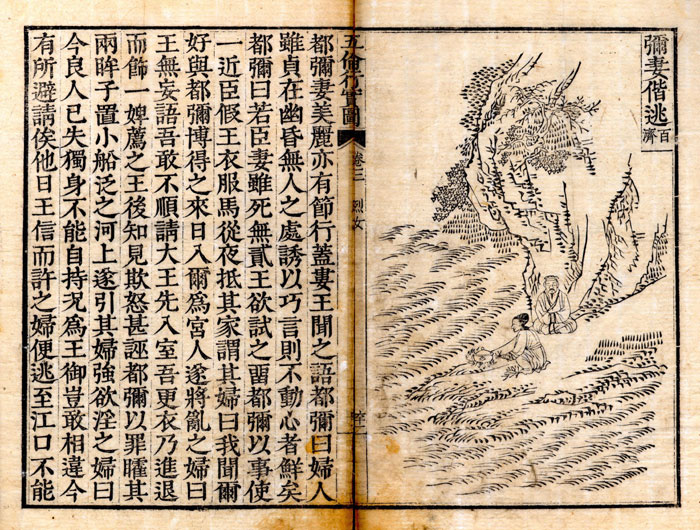 彌妻偕逃 百濟
五倫行實圖 卷三 烈女
都彌妻美麗亦有節行蓋婁王聞之語都彌曰婦人
雖貞在幽昏無人之處誘以巧言則不動心者鮮矣
都彌曰若臣妻雖死無貳王欲試之畱都彌以事使
一近臣假王衣服馬從夜抵其家謂其婦曰我聞爾
好與都彌博得之來日入爾爲宮人遂將亂之婦曰
王無妄語吾敢不順請大王先入室吾更衣乃進退
而飾一婢薦之王後知見欺怒甚誣都彌以罪矐其
兩眸子置小船泛之河上遂引其婦強欲淫之婦曰
今良人已失獨身不能自持况爲王御豈敢相違今
有所避請俟他日王信而許之婦便逃至江口不能